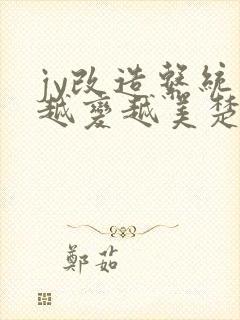 jy改造系統
越變越美楚
鄭茹